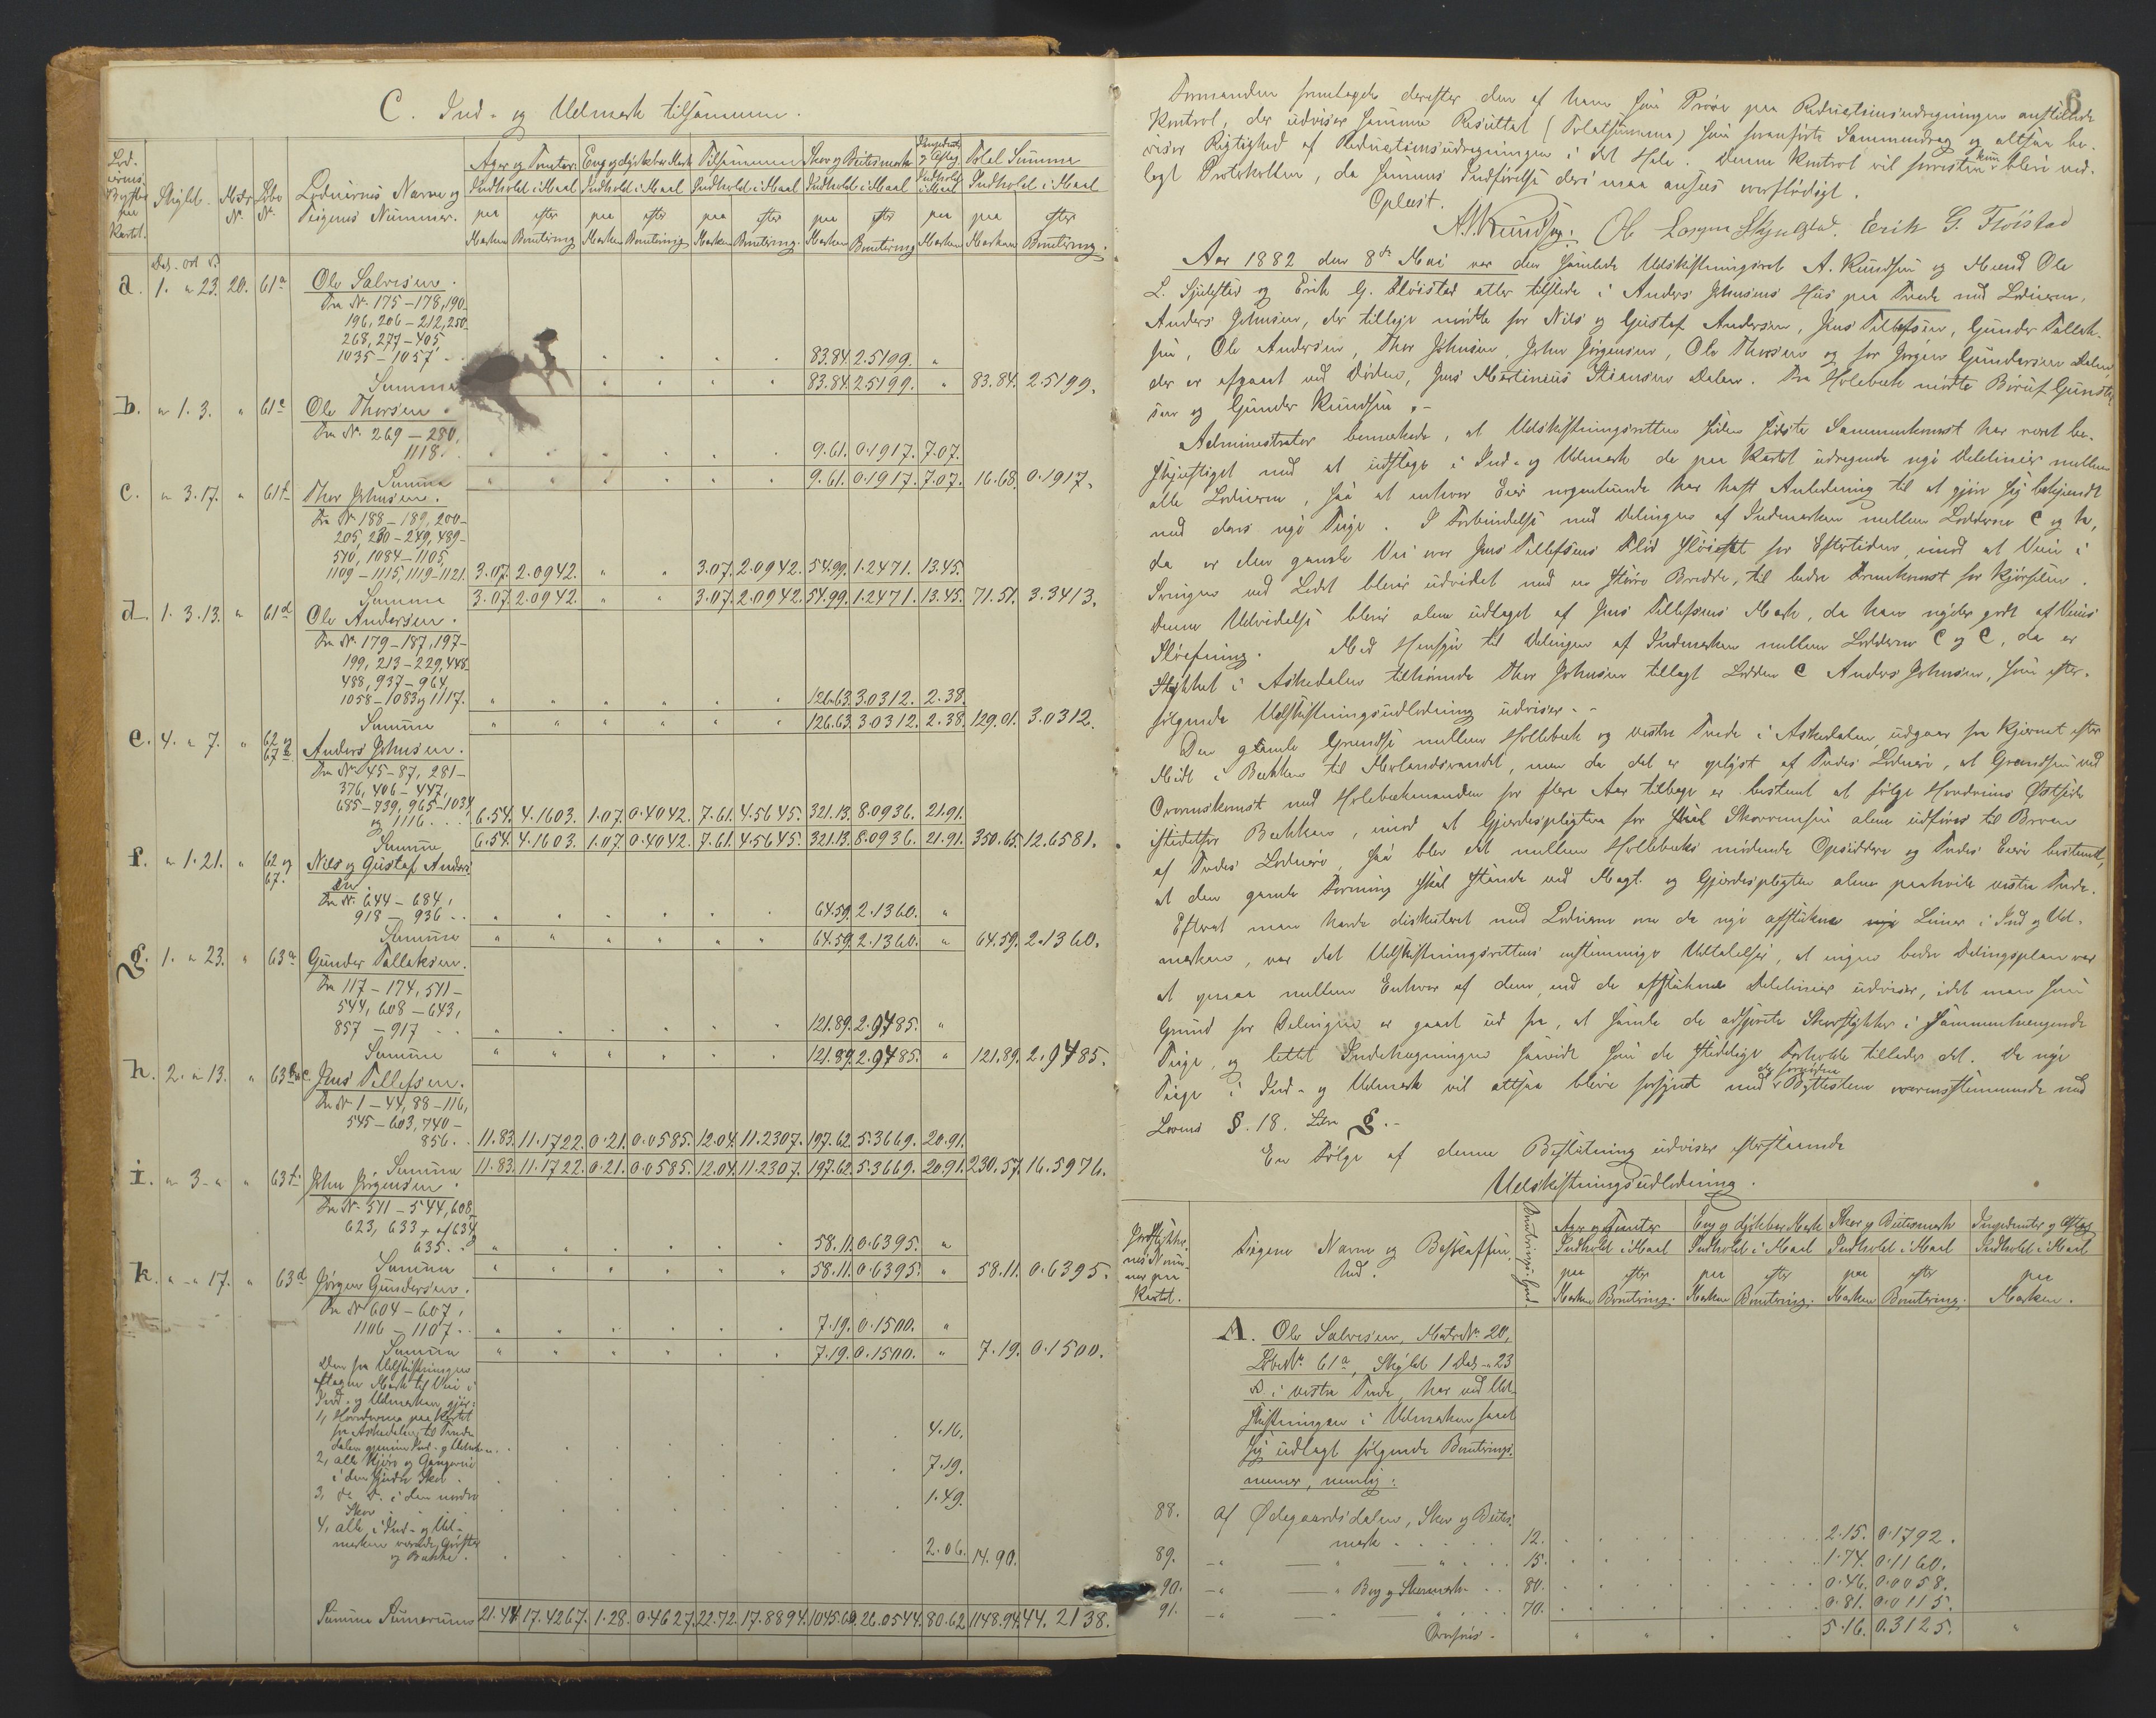 C. Ind- og Udmark tilsammen.
Lod-
eiernes
Bogstav
paa
Kartet.
Skyld.
Matr
N.
Löbe
N.
Lodeiernes Navne og
Teigenes Nummer.
Ager og Tomter
Eng og dyrkbar Mark
Tilsammen
Skov og Beitesmark
Total Summa
Indhold i Maal
Indhold i Maal
Indhold i Maal
Indhold i Maal
Indhold i Maal
Indhold i Maal
paa Marken
efter Bonitering
paa Marken
efter Bonitering
paa Marken
efter Bonitering.
paa Marken
efter Bonitering
paa Marken
paa Marken
efter Bonitering.
a. 1. " 23. 20. 61a Ole Salvesen.
Fra N. 175-178, 190-
196, 206-212, 250-
268, 277-405,
1035-1057 83.84. 2.5199. "
Summa 83.84. 2.5199. " 83.84. 2.5199.
b. " 1. 3. " 61e Ole Thorsen.
Fra N. 269-280,
1118. 9.61. 0.1917. 7.07.
Summa 9.61. 0.1917. 7.07. 16.68. 0.1917.
c. " 3. 17. " 61f Thor Johnsen.
Fra N. 188-189, 200-
205, 230-249, 489-
510, 1084-1105,
1109-1115, 1119-1121. 3.07. 2.0942. " " 3.07. 2.0942. 54.99. 1.2471. 13.45.
Summa 3.07. 2.0942. " " 3.07. 2.0942. 54.99. 1.2471. 13.45. 71.51. 3.3413.
d. 1. 3. 13. " 61d Ole Andersen.
Fra N. 179-187, 197-
199, 213-229, 448-
488, 937-964,
1058-1083 og 1117. 126.63. 3.0312. 2.38.
Summa 126.63. 3.0312. 2.38. 129.01. 3.0312.
e. 4. " 7. " 62 og 67 Anders Johnsen.
Fra N. 45-87, 281-
376, 406-447,
685-739, 965-1034,
og 1116. 6.54. 4.1603. 1.07. 0.4042. 7.61. 4.5645. 321.13. 8.0936. 21.91.
Summa 6.54. 4.1603. 1.07. 0.4042. 7.61. 4.5645. 321.13. 8.0936. 21.91. 350.65. 12.6581.
f. " 1. 21. " 62 og 67. Nils og Gustaf Anders-
sen
Fra N. 644-684,
918-936 64.59. 2.1360. "
Summa 64.59. 2.1360. " 64.59. 2.1360.
g. 1. " 23. " 63a Gunder Tallaksen.
Fra 117-174, 511-
544, 608-643,
857-917 121.89. 2.9785. "
Summa 121.89. 2.9785. " 121.89. 2.9785.
h. 2. " 13. " 63b Jens Tellefsen.
Fra N. 1-44, 88-116,
545-603, 740-
856. 11.83. 11.1722. 0.21. 0.0585. 12.04. 11.2307. 197.62. 5.3669. 20.91.
Summa 11.83. 11.1722. 0.21. 0.0585. 12.04. 11.2307. 197.62. 5.3669. 20.91. 230.57. 16.5976.
i. " 3. " " 63f John Jörgensen.
Fra N. 511-544, 608-
623, 633 + af 634,
635. 58.11. 0.6395. "
Summa 58.11. 0.6395. " 58.11. 0.6395.
k. " " 17. " 63d Jörgen Gundersen.
Fra N. 604-607,
1106-1107. 7.19. 0.1500. "
Summa 7.19. 0.1500. " 7.19. 0.1500.
Den fra Udskiftningen
aftagne Mark til Vei i
Ind- og Udmarken, gjör:
1, Hovedveien paa Kartet
fra Askedalen til Tvede-
dalen gjennem Ind- og Udmark 4.16.
2, alle Kjöre og Gangveie
i den söndre Skov 7.19.
3, de D. i den nordre
Skov 1.49.
4, alle i Ind- og Ud-
marken værende Gröfter
og Bække. 2.06. 14.90.
Summa Summarum 21.44. 17.4267. 1.28. 0.4627. 22.72. 17.8894. 1045.60. 26.0544. 80.62. 1148.94. 44.2138.
6
Formanden fremlagde derefter den af ham som Pröve paa Reduktionsudregningen anstillede
Kontrol, der udviser samme Resultat (Totalsumma) som foranförte Sammendrag og altsaa be-
viser Rigtighed af Reduktionsudregningen i det Hele. Denne Kontrol vil forresten kun blive ned-
lagt Protokollen, da sammes Indförelse deri maa ansees overflödigt.
Oplæst.
A. Knudsen. Ole Larsen Skjulstad. Erik G. Flöistad
Aar 1882 den 8de Mai var den samlede Udskiftningsret A. Knudsen og Mænd Ole
L. Sjulstad og Erik G. Flöistad atter tilstede i Anders Johnsens Hus paa Tvede med Lodeierne,
Anders Johnsen, der tillige mödte for Nils og Gustaf Andersen, Jens Tellefsen, Gunder Tallak-
sen, Ole Andersen, Thor Johnsen, John Jörgensen, Ole Thorsen og for Jörgen Gundersen Dalen
der er afgaaet ved Döden, Jens Martinius Steansen Dalen. Fra Holebæk mödte Borüf Gunst-
sen og Gunder Knudsen.-
Administrator bemærkede, at Udskiftningsretten siden sidste Sammenkomst har været be-
skjæftiget med at udstage i Ind- og Udmark de paa Kartet udregnede nye Delelinier mellem
alle Lodeierne, saa at enhver Eier nogenlunde har havt Anledning til at gjöre sig bekjendt
med dens nye Teige. I Forbindelse med Delingen af Indmarken mellem Lodderne e og h,
da er den gamle Vei over Jens Tellefsens Flöi slöifet for Eftertiden, imod at Veien i
Svingen ved Ledet bliver udvidet med en större Bredde, til bedre Fremkomst for Kjörselen.
Denne Udvidelse bliver alene udlagt af Jens Tellefsens Mark, da han nyder godt af Veiens
Slöifning. Med Hensyn til Delingen af Indmarken mellem Lodderne c og e, da er
Stykket i Askedalen tilhörende Thor Johnsen tillagt Lodden e Anders Johnsen, som efter-
fölgende Udskiftningsudlodning udviser.-
Den gamle Grændse mellem Hollebæk og vestre Tvede i Askedalen udgaar fra Kjernet efter
Midt i Bækken til Mærlandsvandet, men da det er oplyst af Tvedes Lodeiere, at Grændsen ved
Overenskomst med Holebækmanden for flere Aar tilbage er bestemt at fölge Hovedveiens Östside
istedetfor Bækken, imod at Gjerdespligten for Skovrensen alene udföres til Broen
af Tvedes Lodeiere, saa blev det mellem Hollebæks mödende Opsiddere og Tvedes Eiere bestemt,
at den gamle Forening skal stande ved Magt. og Gjerdespligten alene paahvile vestre Tvede.
Efterat man havde diskuteret med Lodeierne om de nye afstukne Linier i Ind og Ud-
marken, var det Udskiftningsrettens enstemmige Udtalelse, at ingen bedre Delingsplan var
at opnaa mellem Enhver af dem, end de afstukne Delelinier udviser, idet man som
Grund for Delingen er gaaet ud fra, at samle de adspredte Skovstykker i sammenhængende
Teige, og lettet Indhegningen saavidt som de stedelige Forholde tillader det. De nye
Teige i Ind- og Udmark vil altsaa blive forsynet med de fornödne Byttestene overensstemmende med
Lovens §. 18. Litr g.-
En Fölge af denne Beslutning udviser efterstaaende
Udskiftningsudlodning.
Jordstykke-
nes Num-
mer paa
Kartet.
Teigene Navne og Beskaffen-
hed.
Ager og Tomter
Indhold i Maal
Eng og dyrkbar Mark
Indhold i Maal
Skov og Beitesmark
Indhold i Maal
Indhold i Maal
paa Marken
efter Bonitering.
paa Marken
efter Bonitering.
paa Marken
efter Bonitering.
paa Marken.
A. Ole Salvesen, Matr N. 20,
Löbe N. 61a, Skyld 1 Dal. " 23
ß i vestre Tvede, har ved Ud-
skiftningen i Udmarken faaet
sig udlagt fölgende Boniterings-
numer, nemlig:
88. af Ödegaardsdalen, Skov og Beites-
mark 12. 2.15. 0.1792.
89. -" — " — " 15. 1.74. 0.1160.
90. -" — " Berg og Skovmark 80. 0.46. 0.0058.
91. -" — " 70. 0.81. 0.0115.
Overföres. 5.16. 0.3125. "